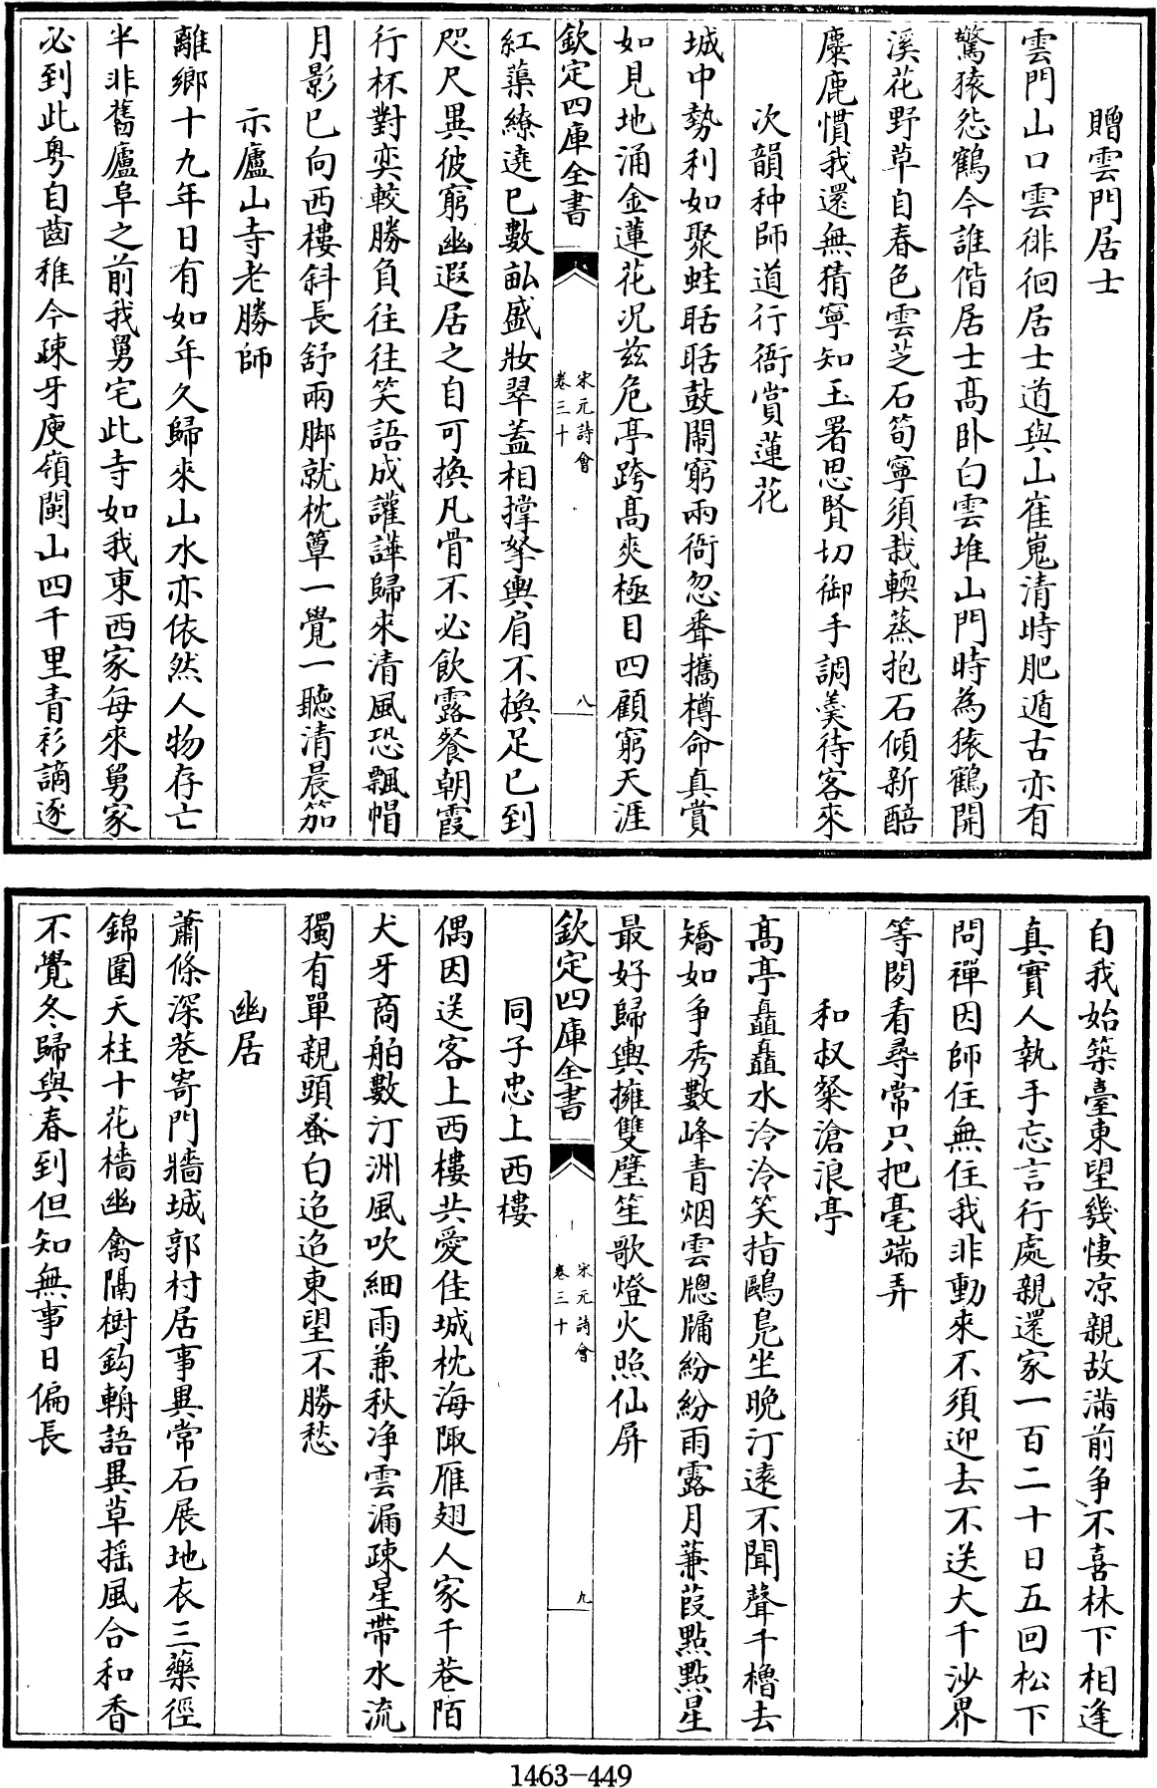 贈雲門居士
雲門山口雲徘徊居士道與山崔嵬清時肥遁古亦有
驚猿怨鶴今誰偕居士高卧白雲堆山門時為猿鶴開
溪花野草自春色雲芝石筍寧須栽輭蒸抱石傾新醅
麋鹿慣我還無猜寧知玉署思賢切御手調羮待客來
次韻种師道行衙賞蓮花
城中勢利如聚蛙聒聒鼓鬧窮兩衙忽聳攜樽命真賞
如見地涌金蓮花况兹危亭跨高爽極目四顧窮天涯
欽定四庫全書
宋元詩會
卷三十
八
紅蕖繚遶已數畝盛妝翠蓋相撑拏輿肩不換足已到
咫尺異彼窮幽遐居之自可換凡骨不必飲露餐朝霞
行杯對奕較勝負往往笑語成讙譁歸來清風恐飄帽
月影已向西樓斜長舒兩脚就枕簟一覺一聽清晨笳
示廬山寺老勝師
離鄉十九年日有如年久歸來山水亦依然人物存亡
半非舊廬阜之前我舅宅此寺如我東西家每來舅家
必到此粤自齒稚今疎牙庾嶺閩山四千里青衫謫逐
自我始築臺東望幾悽凉親故滿前争不喜林下相逢
真實人執手忘言行處親還家一百二十日五回松下
問禪因師住無住我非動來不須迎去不送大千沙界
等閎看尋常只把毫端弄
和叔粲滄浪亭
高亭矗矗水泠泠笑指鷗鳧坐晩汀遠不聞聲千櫓去
矯如争秀數峰青烟雲牕牖紛紛雨露月蒹葭點點星
最好歸輿擁雙璧笙歌燈火照仙屏
欽定四庫全書
宋元詩會
卷三十
九
同子忠上西樓
偶因送客上西樓共愛佳城枕海陬雁翅人家千巷陌
犬牙商舶數汀洲風吹細雨兼秋浄雲漏疎星帶水流
獨有單親頭蚤白迢迢東望不勝愁
幽居
蕭條深巷寄門牆城郭村居事異常石展地衣三藥徑
錦圍天柱十花檣幽禽隔樹鈎輈語異草摇風合和香
不覺冬歸與春到但知無事日偏長
1463-449